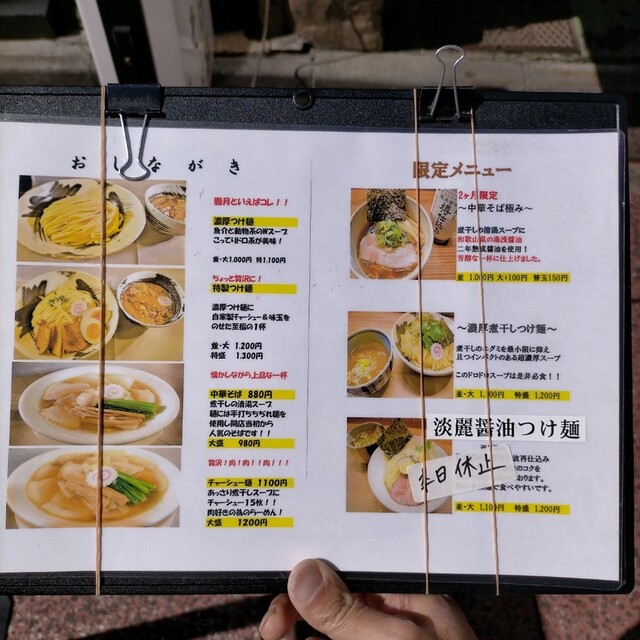 おしながき
朧月といえばコレ！！
濃厚つけ麺
魚介と動物系のWスープ
こってりドロ系が美味！
並・大1.000円 特1.100円
ちょっと贅沢に！
特製つけ麺
濃厚つけ麺に
自家製チャーシュー&味玉を
のせた至福の1杯
並・大 1.200円
特盛 1.300円
懐かしながら上品な一杯
中華そば 880円
煮干しの清湯スープ
麺には平打ちちぢれ麺を
使用し開店当初から
人気のそばです！！
大盛 980円
贅沢！肉！肉！！肉！！！
チャーシュー麺 1100円
あっさり煮干しスープに
チャーシュー15枚！！
肉好きの為のらーめん！
大盛 1200円
限定メニュー
2ヶ月限定
～中華そば極み～
煮干しの清湯スープに
和歌山県の湯浅醤油
二年熟成醤油を使用！
芳醇な一杯に仕上げました。
並 1.000円 大+100円 替玉150円
～濃厚煮干しつけ麺～
煮干しのエグミを最小限に抑え
且つインパクトのある超濃厚スープ
このドロドロスープは是非必食！！
並・大 1.100円 特盛 1.200円
淡麗醤油つけ麺
再仕込み
のコクを
おります。
で食べやすいです。
本日休止
並・大 1,100円 特盛 1.200円